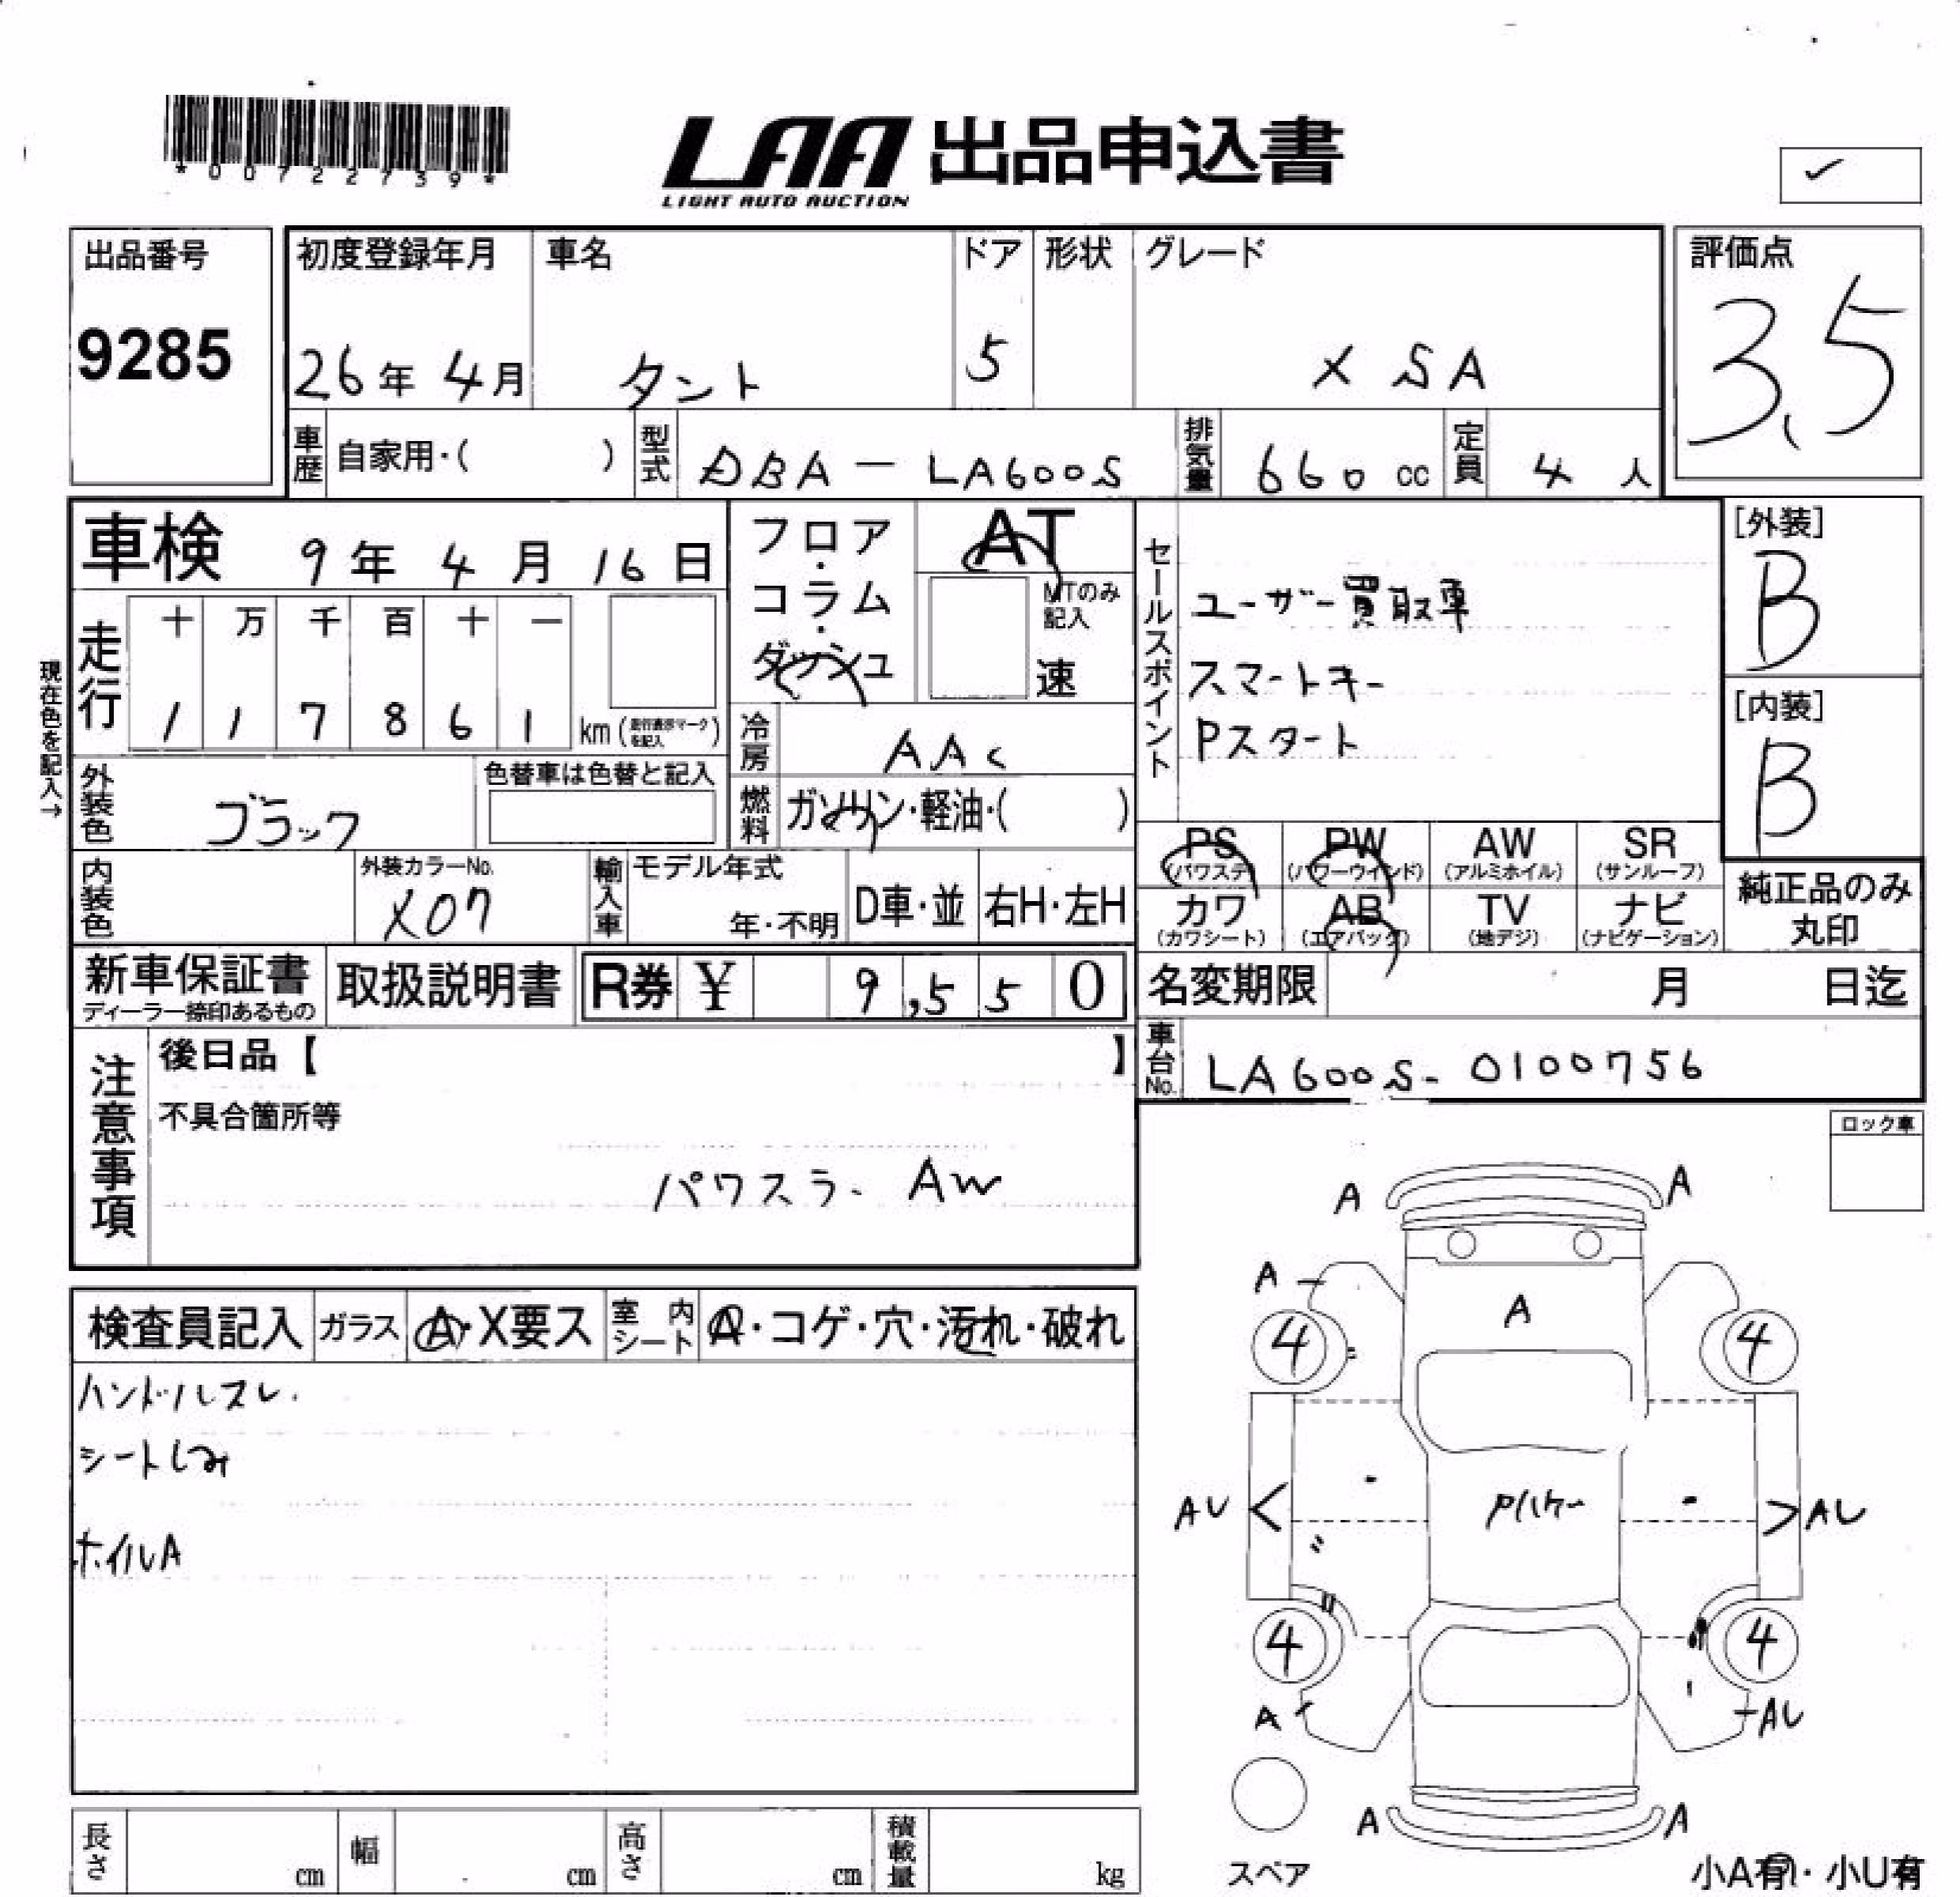 *00722739*
LAA 出品申込書
LIGHT AUTO AUCTION
出品番号
9285
初度登録年月
26年 4月
車名
タント
ドア
5
形状
グレード
X SA
評価点
3.5
車歴
自家用・( )
型式
DBA-LA600S
排気量
660 cc
定員
4 人
車検 9年 4月 16日
フロア・コラム・ダッシュ
AT
MTのみ記入
速
セールスポイント
ユーザー買取車
スマートキー
Pスタート
[外装]
B
[内装]
B
現在色を記入→
走行
十 万 千 百 十 一
1 1 7 8 6 1 km (走行表示マークを記入)
冷房
AAC
外装色
ブラック
色替車は色替と記入
燃料
ガソリン・軽油・( )
PS (パワステ)
PW (パワーウインド)
AW (アルミホイル)
SR (サンルーフ)
カワ (カワシート)
AB (エアバッグ)
TV (地デジ)
ナビ (ナビゲーション)
純正品のみ丸印
内装色
外装カラーNo.
X07
輸入車
モデル年式
年・不明
D車・並
右H・左H
新車保証書
ディーラー捺印あるもの
取扱説明書
R券 ¥ 9,550
名変期限 月 日迄
車台No.
LA600S-0100756
注意事項
後日品【 】
不具合箇所等
パワスラ. AW
ロック車
検査員記入
ガラス
A・X要ス
室内シート
A・コゲ・穴・汚れ・破れ
ハンドルスレ.
シートしみ
ホイルA
A A
A
A
4 4
AU AU
4 4
A AU
A A
スペア
小A有・小U有
長さ cm
幅 cm
高さ cm
積載量 kg